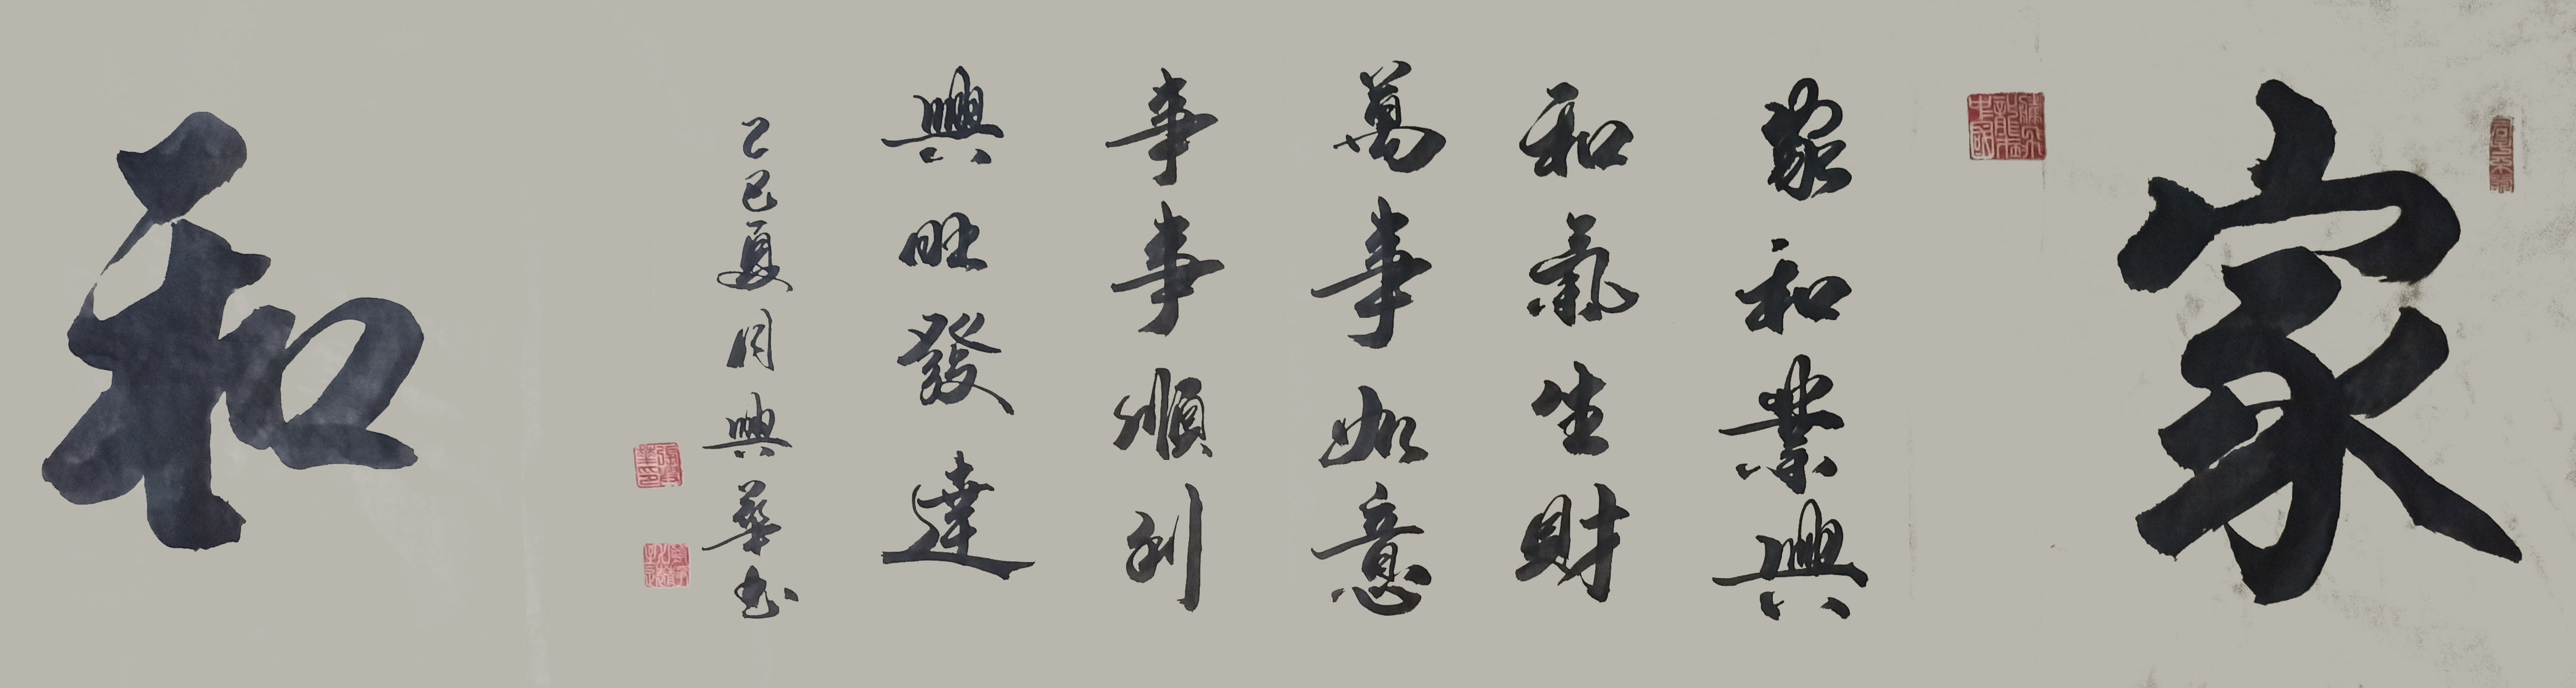 家
家和業興
和氣生財
萬事如意
事事順利
興旺發達
乙巳夏月興華书
和